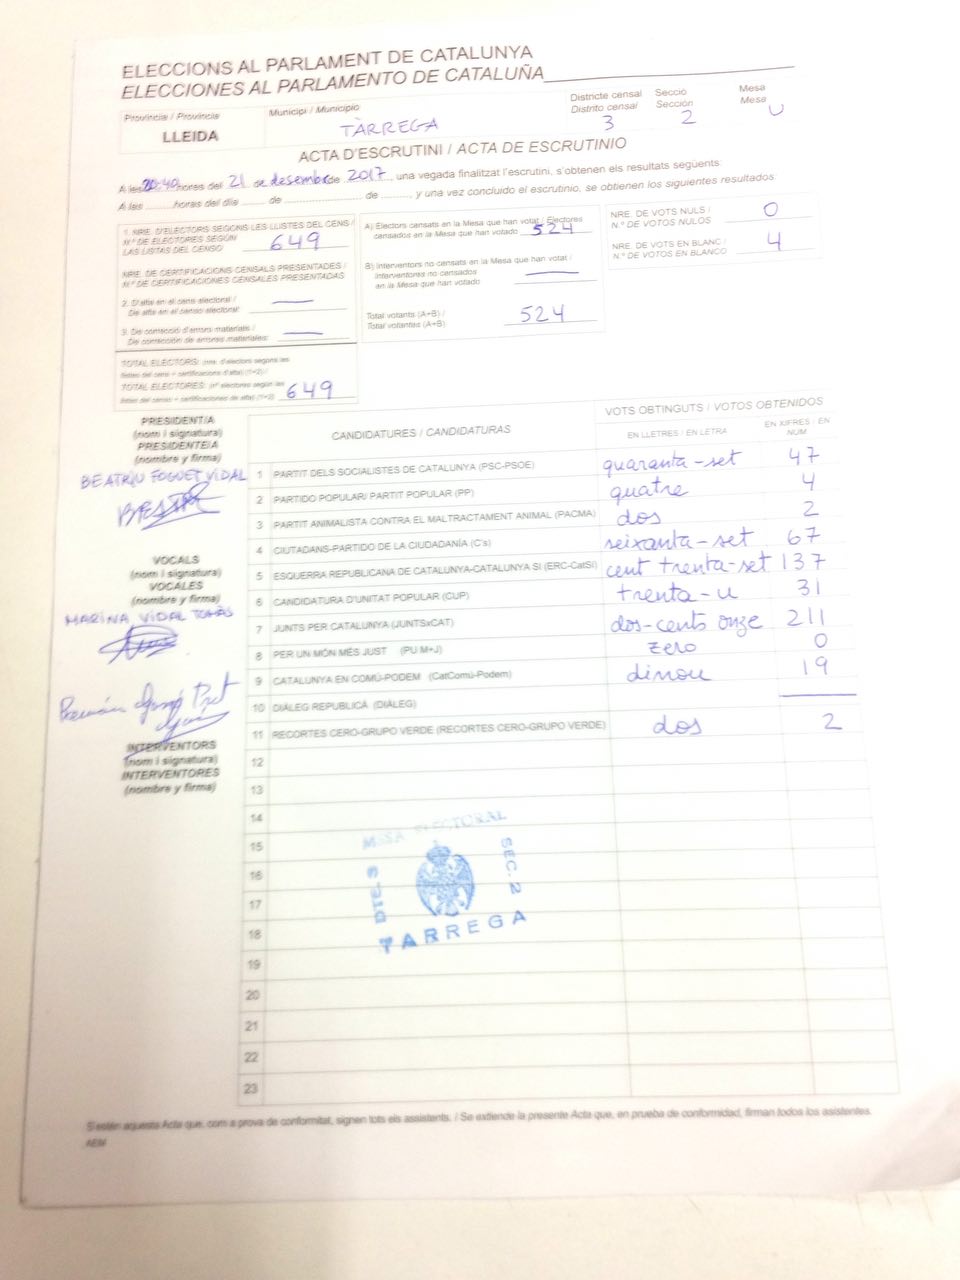 ELECCIONS AL PARLAMENT DE CATALUNYA
ELECCIONES AL PARLAMENTO DE CATALUÑA
Província / Provincia
LLEIDA
Municipi / Municipio
TÀRREGA
Districte censal
Distrito censal
3
Secció
Sección
2
Mesa
Mesa
U
ACTA D'ESCRUTINI / ACTA DE ESCRUTINIO
A les 20:40 hores del 21 de desembre de 2017, una vegada finalitzat l'escrutini, s'obtenen els resultats següents:
A las horas del día de de y una vez concluido el escrutinio, se obtienen los siguientes resultados:
1. NRE. D'ELECTORS SEGONS LES LLISTES DEL CENS /
N.º DE ELECTORES SEGÚN
LAS LISTAS DEL CENSO
649
NRE. DE CERTIFICACIONS CENSALS PRESENTADES /
N.º DE CERTIFICACIONES CENSALES PRESENTADAS
2. D'alta en el cens electoral /
De alta en el censo electoral:
3. De correcció d'errors materials /
De corrección de errores materiales:
TOTAL ELECTORS: (nre. d'electors segons les
llistes del cens + certificacions d'alta) (1+2) /
TOTAL ELECTORES: (nº electores según las
listas del censo + certificaciones de alta) (1+2)
649
A) Electors censats en la Mesa que han votat / Electores
censados en la Mesa que han votado
524
B) Interventors no censats en la Mesa que han votat /
Interventores no censados
en la Mesa que han votado
Total votants (A+B) /
Total votantes (A+B)
524
NRE. DE VOTS NULS /
N.º DE VOTOS NULOS
0
NRE. DE VOTS EN BLANC /
N.º DE VOTOS EN BLANCO
4
PRESIDENT/A
(nom i signatura)
PRESIDENTE/A
(nombre y firma)
BEATRIU FOGUET VIDAL
VOCALS
(nom i signatura)
VOCALES
(nombre y firma)
MARINA VIDAL TOMÀS
INTERVENTORS
(nom i signatura)
INTERVENTORES
(nombre y firma)
CANDIDATURES / CANDIDATURAS
VOTS OBTINGUTS / VOTOS OBTENIDOS
EN LLETRES / EN LETRA
EN XIFRES / EN NÚM
1 PARTIT DELS SOCIALISTES DE CATALUNYA (PSC-PSOE) quaranta-set 47
2 PARTIDO POPULAR/ PARTIT POPULAR (PP) quatre 4
3 PARTIT ANIMALISTA CONTRA EL MALTRACTAMENT ANIMAL (PACMA) dos 2
4 CIUTADANS-PARTIDO DE LA CIUDADANÍA (C's) seixanta-set 67
5 ESQUERRA REPUBLICANA DE CATALUNYA-CATALUNYA SÍ (ERC-CatSí) cent trenta-set 137
6 CANDIDATURA D'UNITAT POPULAR (CUP) trenta-u 31
7 JUNTS PER CATALUNYA (JUNTSxCAT) dos-cents onze 211
8 PER UN MÓN MÉS JUST (PU M+J) zero 0
9 CATALUNYA EN COMÚ-PODEM (CatComú-Podem) dinou 19
10 DIÀLEG REPUBLICÀ (DIÀLEG)
11 RECORTES CERO-GRUPO VERDE (RECORTES CERO-GRUPO VERDE) dos 2
12
13
14
15
16
17
18
19
20
21
22
23
MESA ELECTORAL
DTE. 3
SEC. 2
TARREGA
S'estén aquesta Acta que, com a prova de conformitat, signen tots els assistents. / Se extiende la presente Acta que, en prueba de conformidad, firman todos los asistentes.